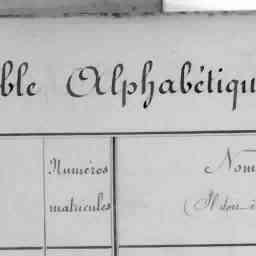 ble Alphabétiqu
Numéros
matricules
Nom
(Il doit ê